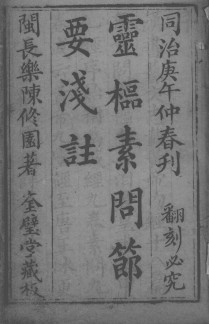 同治庚午仲春刊 翻刻必究
靈樞素問節
要淺註
閩長樂陳修園著 奎璧堂藏板